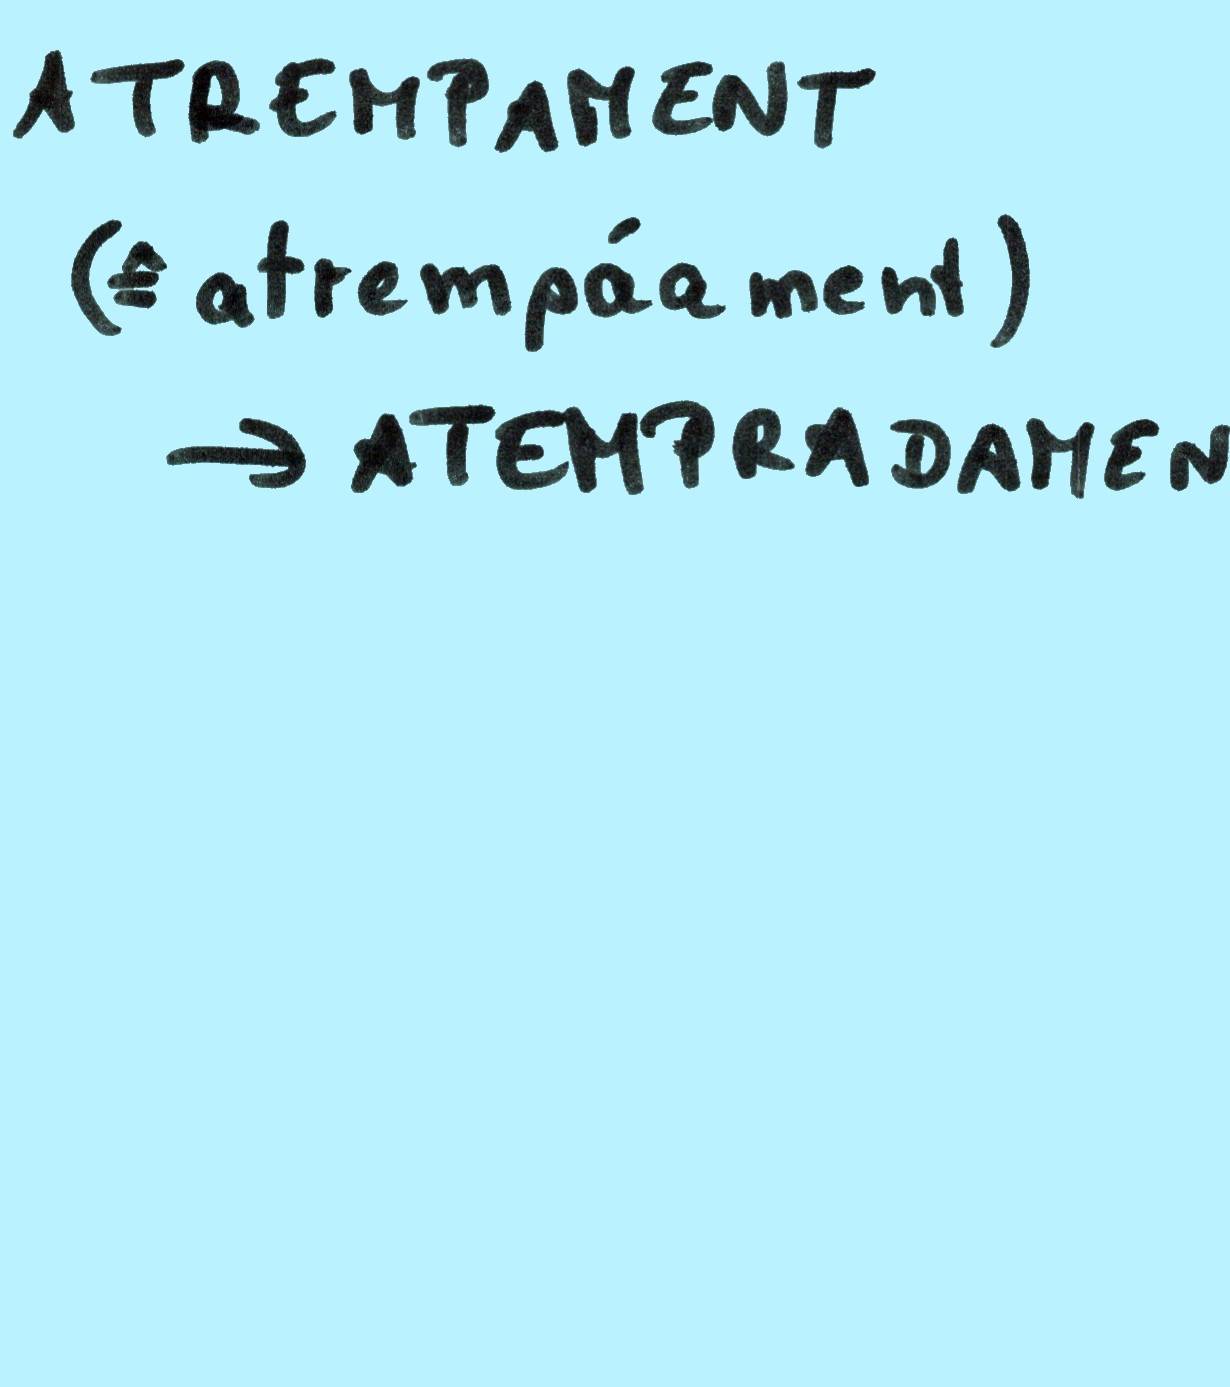 ATREMPAMENT
(≙ atrempáament)
→ ATEMPRADAMEN